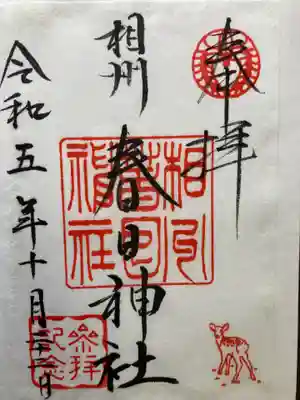 奉拝
相州
春日神社
令和五年十月二十一日
相州
春日
神社
参拝
記念